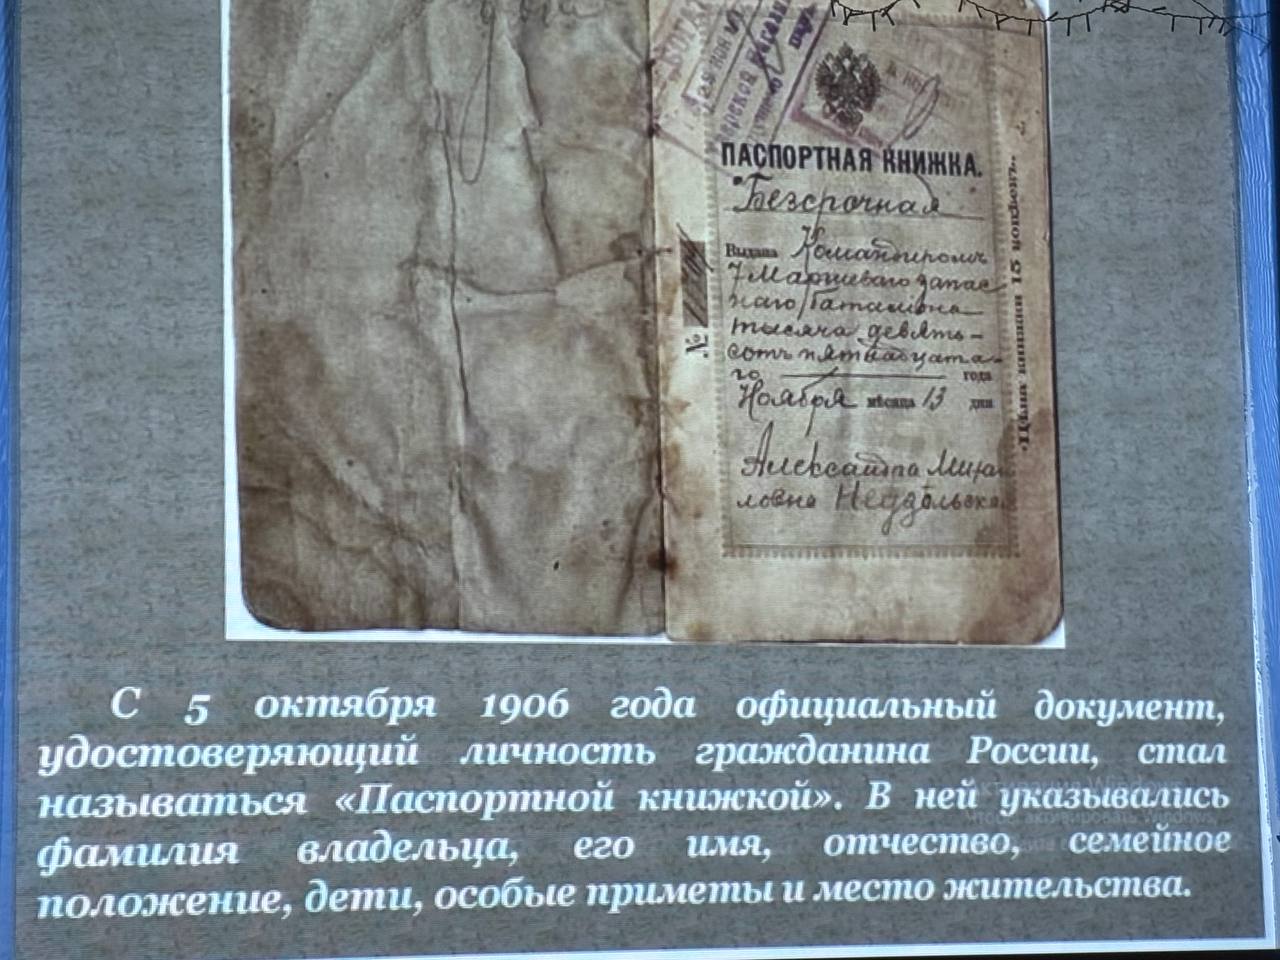 ПАСПОРТНАЯ КНИЖКА.
Безсрочная
Выдана Командиромъ
7 Маршеваго запас
наго баталiона
тысяча девять-
сотъ пятнадцата-
го года
Ноября мѣсяца 13 дня
Александра Михаи
ловна
№
Цѣна книжки 15 копѣекъ.
С 5 октября 1906 года официальный документ,
удостоверяющий личность гражданина России, стал
называться «Паспортной книжкой». В ней указывались
фамилия владельца, его имя, отчество, семейное
положение, дети, особые приметы и место жительства.